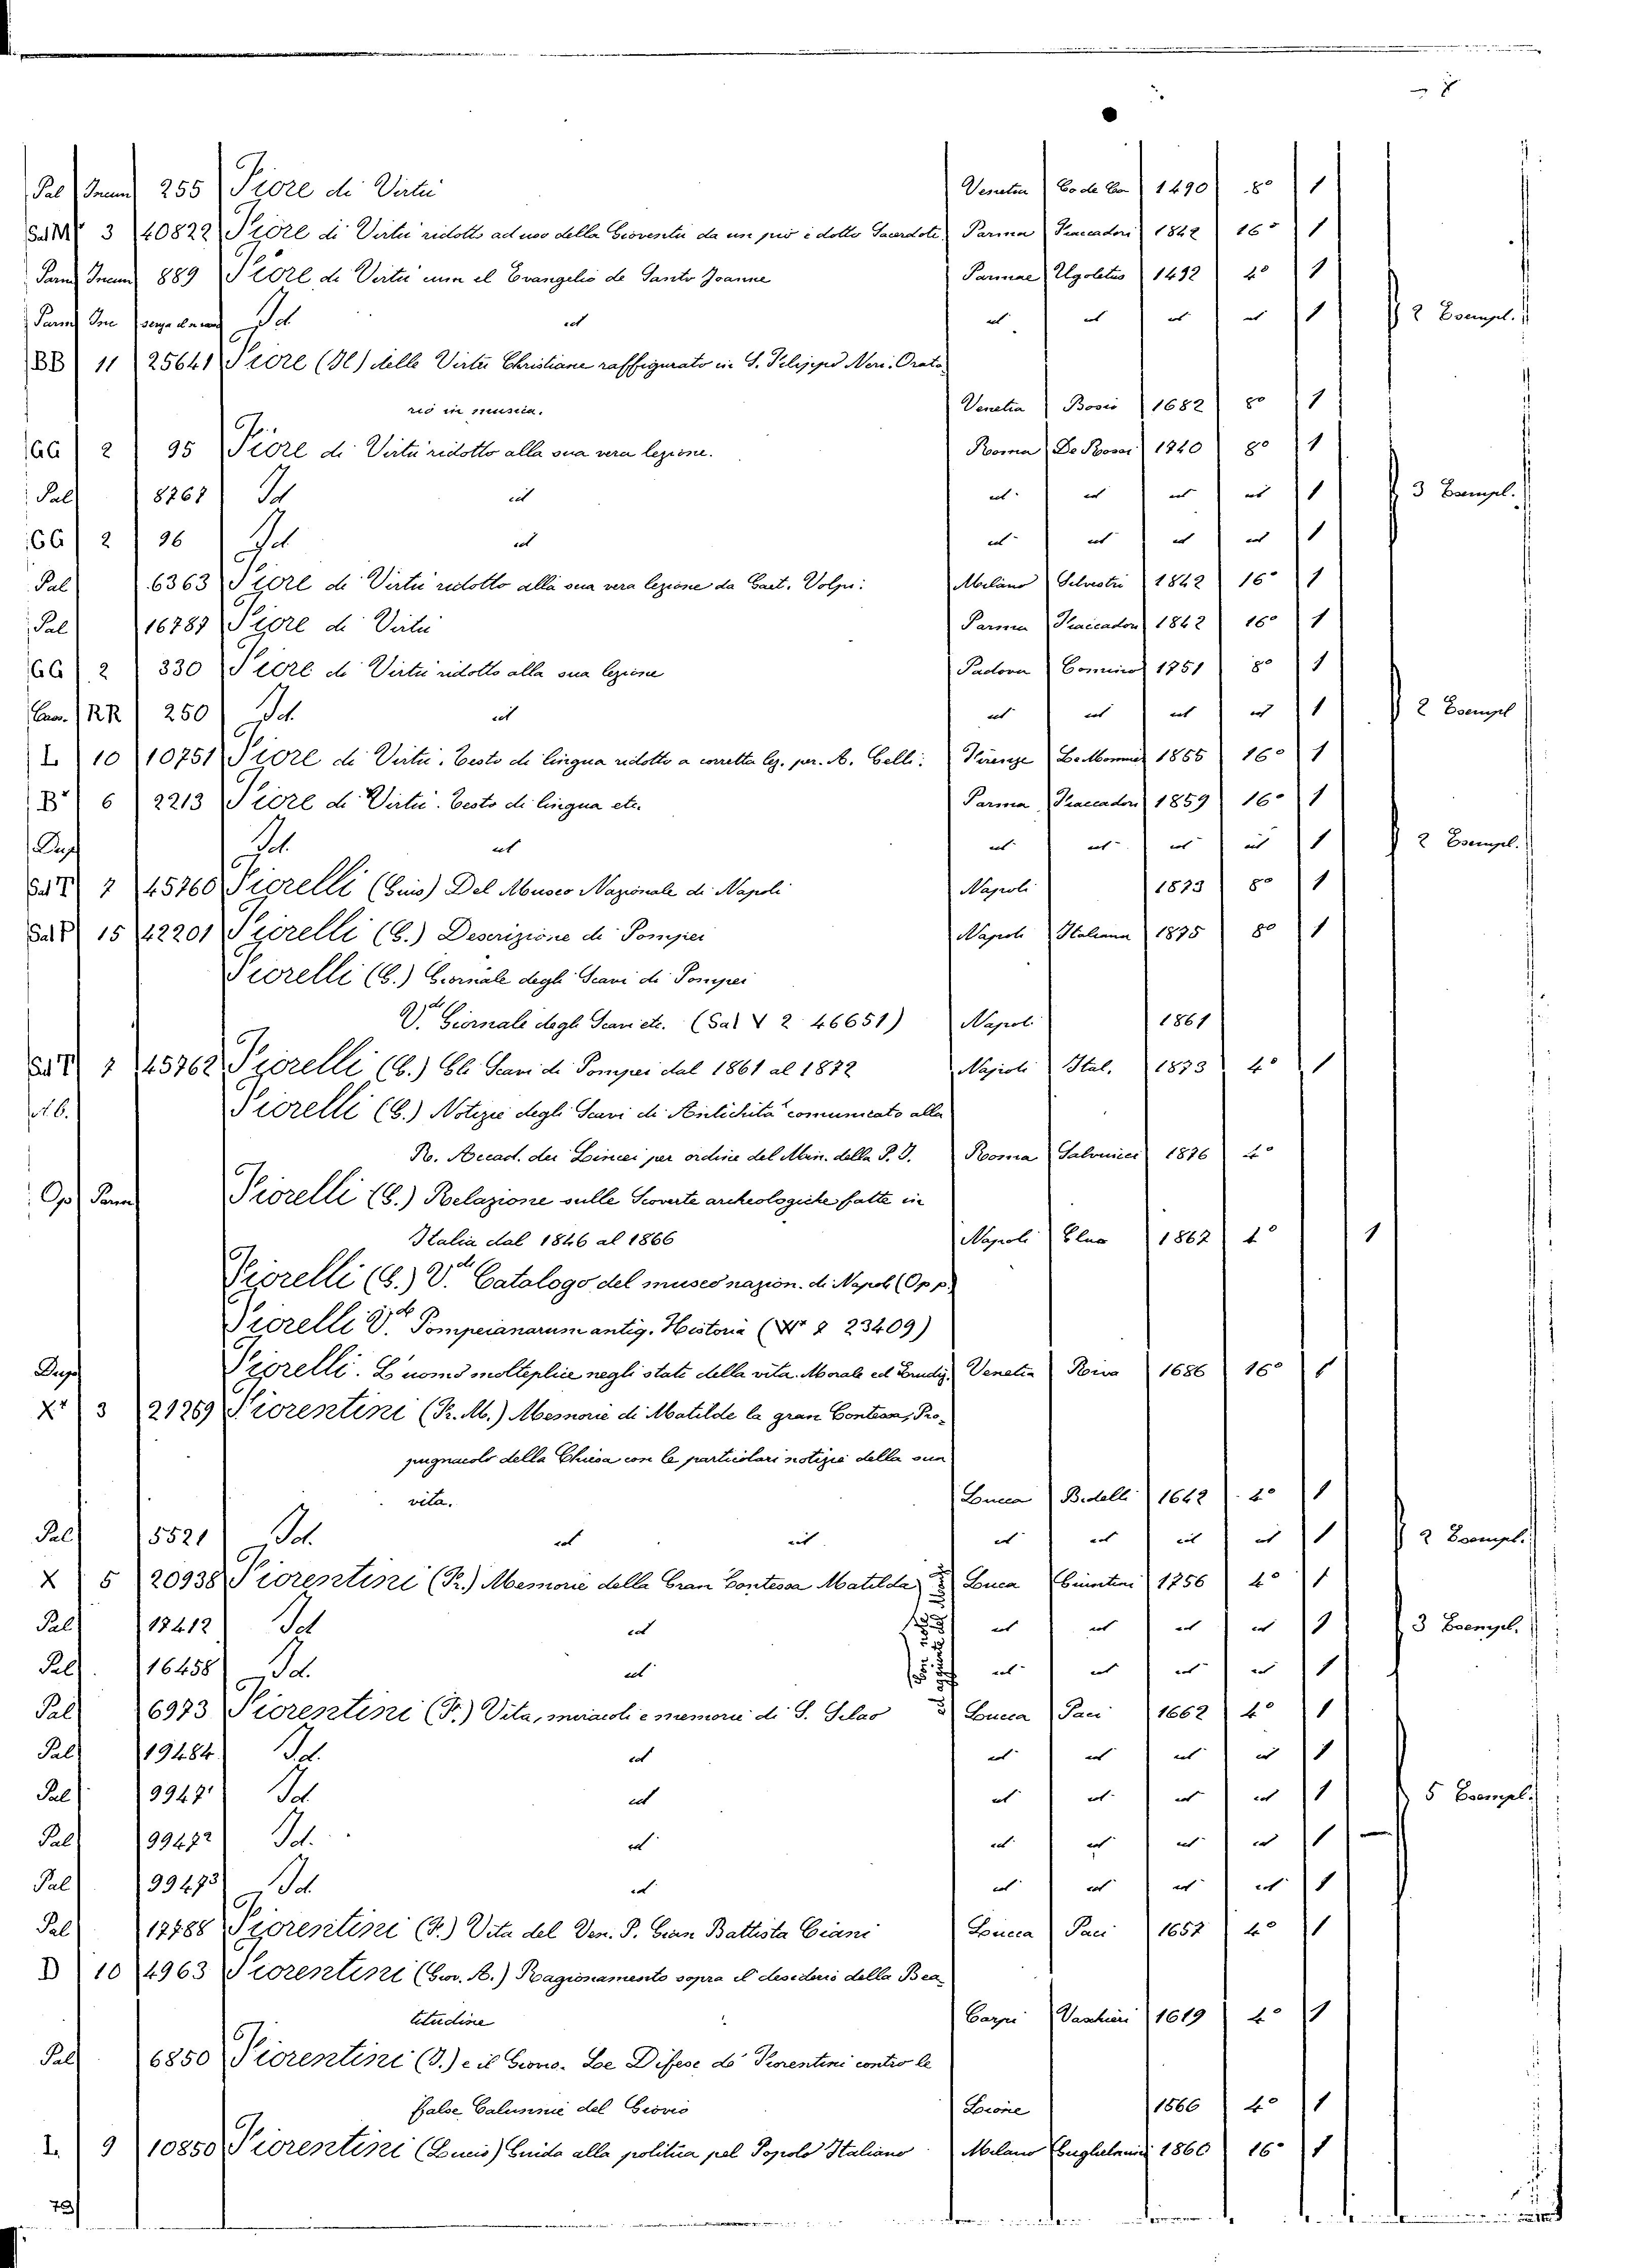 Pal Incun 255 Fiore di Virtù Venetia Co de Ca 1490 8° 1
Sal M 3 40822 Fiore di Virtù ridotto ad uso della Gioventù da un pio e dotto Sacerdote Parma Fiaccadori 1842 16° 1
Parm Incun 889 Fiore di Virtù cum el Evangelio de Santo Joanne Parmae Ugoletus 1492 4° 1
Parm Inc Id. id id id id id 1 2 Esempl.
BB 11 25641 Fiore (Il) delle Virtù Christiane raffigurato in S. Filippo Neri. Orato
rio in musica. Venetia Bosio 1682 8° 1
GG 2 95 Fiore di Virtù ridotto alla sua vera lezione. Roma De Rossi 1740 8° 1
Pal 8767 Id id id id id id 1 3 Esempl.
GG 2 96 Id id id id id id 1
Pal 6363 Fiore di Virtù ridotto alla sua vera lezione da Gaet. Volpi: Milano Silvestri 1842 16° 1
Pal 16787 Fiore di Virtù Parma Fiaccadori 1842 16° 1
GG 2 330 Fiore di Virtù ridotto alla sua lezione Padova Comino 1751 8° 1
Cas. RR 250 Id. id id id id id 1 2 Esempl
L 10 10751 Fiore di Virtù. Testo di lingua ridotto a corretta lez. per. A. Gelli: Firenze Le Monnier 1855 16° 1
B" 6 2213 Fiore di Virtù. Testo di lingua etc. Parma Fiaccadori 1859 16° 1
Dup Id. id id id id id 1 2 Esempl.
Sal T 7 45760 Fiorelli (Gius) Del Museo Nazionale di Napoli Napoli 1873 8° 1
Sal P 15 42201 Fiorelli (G.) Descrizione di Pompei Napoli Italiana 1875 8° 1
Fiorelli (G.) Giornale degli Scavi di Pompei
V. Giornale degli Scavi etc. (Sal V 2 46651) Napoli 1861
Sal T 7 45762 Fiorelli (G.) Gli Scavi di Pompei dal 1861 al 1872 Napoli Ital. 1873 4° 1
Fiorelli (G.) Notizie degli Scavi di Antichità comunicato alla
R. Accad. dei Lincei per ordine del Min. della P. I. Roma Salviucci 1876 4°
Op Parm Fiorelli (G.) Relazione sulle Scoverte archeologiche fatte in
Italia dal 1846 al 1866 Napoli 1867 4° 1
Fiorelli (G.) V. Catalogo del museo nazion. di Napoli (Opp.)
Fiorelli V. Pompeianarum antiq. Historia (W 2 23409)
Dup Fiorelli. L'uomo molteplice negli stati della vita. Morale ed Erudiz. Venetia Riva 1686 16° 1
X" 3 21769 Fiorentini (F. M.) Memorie di Matilde la gran Contessa, Pro-
pugnacolo della Chiesa con le particolari notizie della sua
vita. Lucca Bidelli 1642 4° 1
Pal 5521 Id. id id id id id id 1 2 Esempl.
X 5 20938 Fiorentini (F.) Memorie della Gran Contessa Matilda Lucca Giuntini 1756 4° 1
Pal 17412 Id id id id id id 1 3 Esempl.
Pal 16458 Id. id id id id id 1
Pal 6973 Fiorentini (F.) Vita, miracoli e memorie di S. Silao Lucca Paci 1662 4° 1
Pal 19484 Id. id id id id id 1
Pal 9947 Id id id id id id 1 5 Esempl.
Pal 9947² Id. id id id id id 1
Pal 9947³ Id id id id id id 1
Pal 17788 Fiorentini (F.) Vita del Ven. P. Gian Battista Ciani Lucca Paci 1657 4° 1
D 10 4963 Fiorentini (Giov. A.) Ragionamento sopra il desiderio della Bea
titudine Carpi Vaschieri 1619 4° 1
Pal 6850 Fiorentini (I.) e il Giovio. Le Difese de' Fiorentini contro le
false Calunnie del Giovio Lione 1566 4° 1
L. 9 10850 Fiorentini (Lucio) Guida alla politica pel Popolo Italiano Milano Guglielmini 1860 16° 1
79